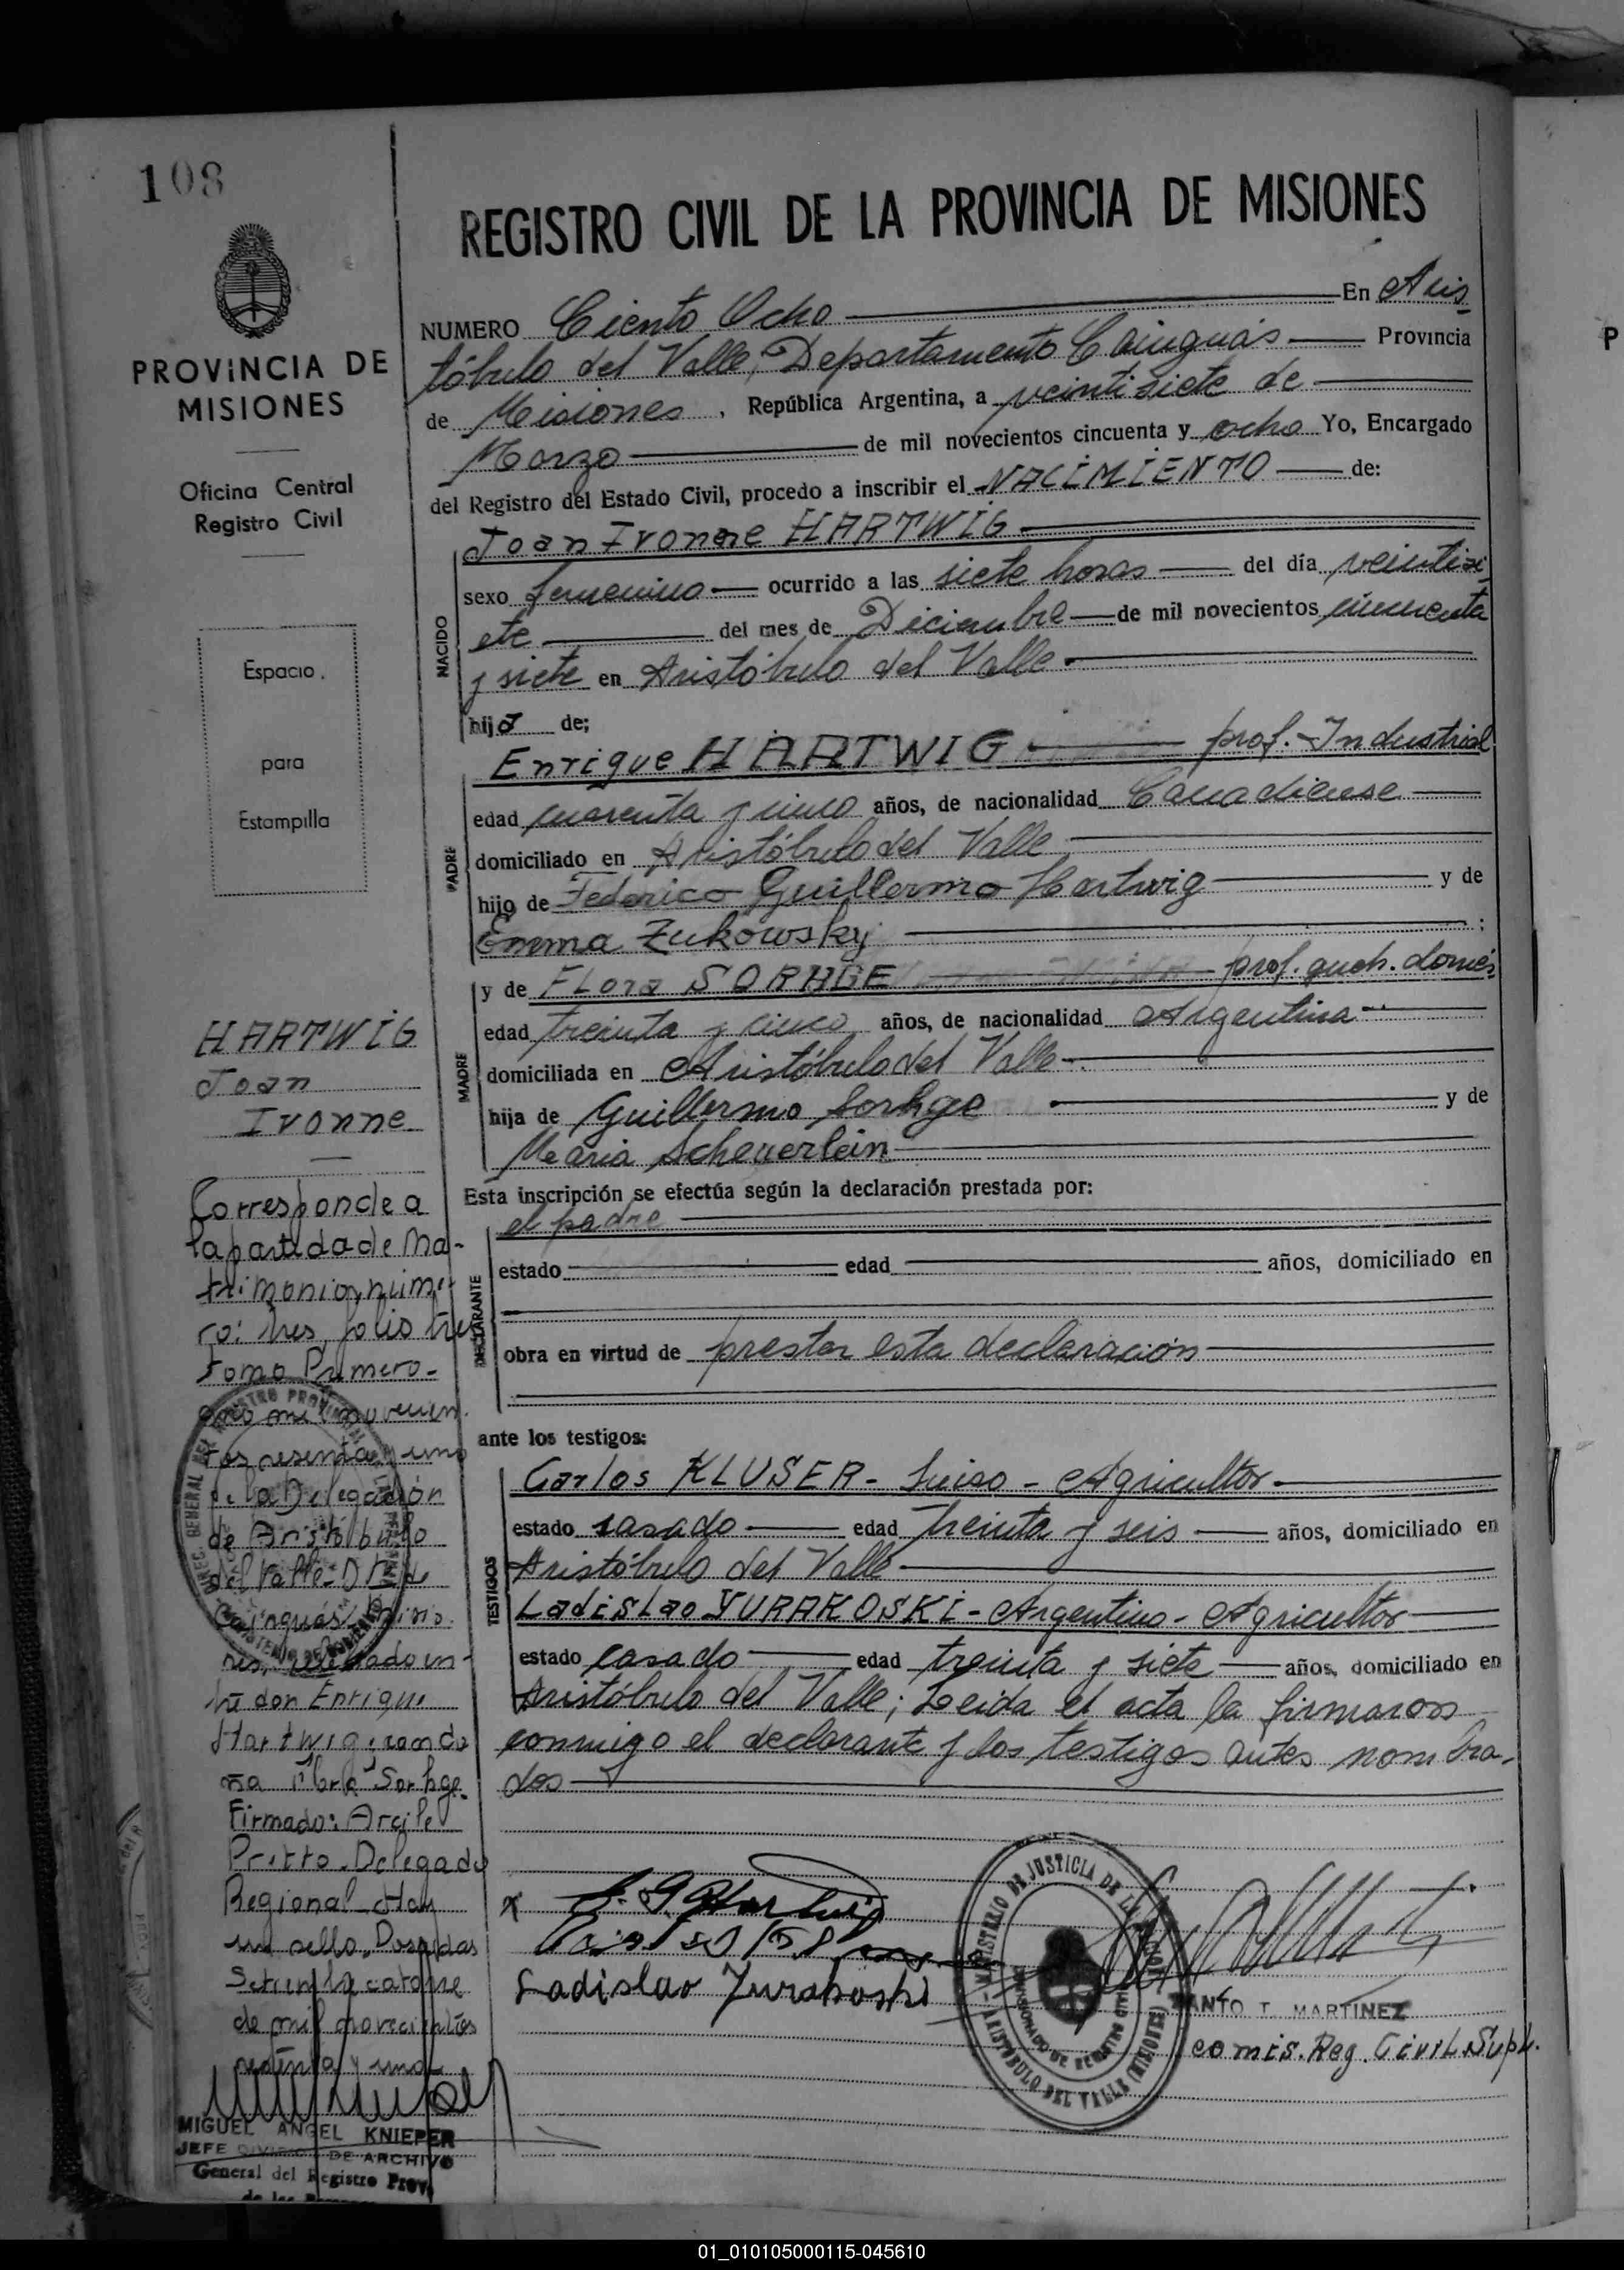 108
PROVINCIA DE
MISIONES
Oficina Central
Registro Civil
Espacio
para
Estampilla
REGISTRO CIVIL DE LA PROVINCIA DE MISIONES
NUMERO Ciento Ocho En Aris
tóbulo del Valle, Departamento Cainguás Provincia
de Misiones, República Argentina, a veintisiete de
Marzo de mil novecientos cincuenta y ocho Yo, Encargado
del Registro del Estado Civil, procedo a inscribir el NACIMIENTO de:
Joan Ivonne HARTWIG
NACIDO
sexo femenino ocurrido a las siete horas del día veintisi
ete del mes de Diciembre de mil novecientos cincuenta
y siete en Aristóbulo del Valle
hija de;
Enrique HARTWIG prof. Industrial
PADRE
edad cuarenta y cinco años, de nacionalidad Canadiense
domiciliado en Aristóbulo del Valle
hijo de Federico Guillermo Hartwig y de
Emma Zukowsky ;
y de FLora SORHGE prof. queh. domés
MADRE
edad treinta y cinco años, de nacionalidad Argentina
domiciliada en Aristóbulo del Valle
hija de Guillermo Sorhge y de
Maria Scheuerlein
Esta inscripción se efectúa según la declaración prestada por:
el padre
DECLARANTE
estado edad años, domiciliado en
obra en virtud de prestar esta declaración
ante los testigos:
Carlos KLUSER - Suizo - Agricultor
TESTIGOS
estado casado edad treinta y seis años, domiciliado en
Aristóbulo del Valle
Ladislao YURAKOSKI - Argentino - Agricultor
estado casado edad treinta y siete años, domiciliado en
Aristóbulo del Valle; Leida el acta la firmaron
conmigo el declarante y los testigos antes nombra-
dos
Ladislao Yurakoski
MINISTERIO DE JUSTICIA DE LA
ARISTOBULO DEL VALLE (MISIONES)
SANTO T. MARTINEZ
comis. Reg. Civil Supl.
HARTWIG
Joan
Ivonne
Corresponde a
la partida de Ma-
trimonio, núme-
ro: tres, folio tres
Tomo Primero-
año mil novecien
tos sesenta y uno
de la Delegación
de Aristóbulo
del Valle - Dto de
Cainguás, Misio
nes, celebrado en-
tre don Enrique
Hartwig con do
ña Flora Sorhge.
Firmado: Arcile
Pritto. Delegado
Regional. Hay
un sello. Posadas
Setiembre catorce
de mil novecientos
sesenta y uno
MIGUEL ANGEL KNIEPER
JEFE DIVISION DE ARCHIVO
General del Registro Prov.
01_010105000115-045610